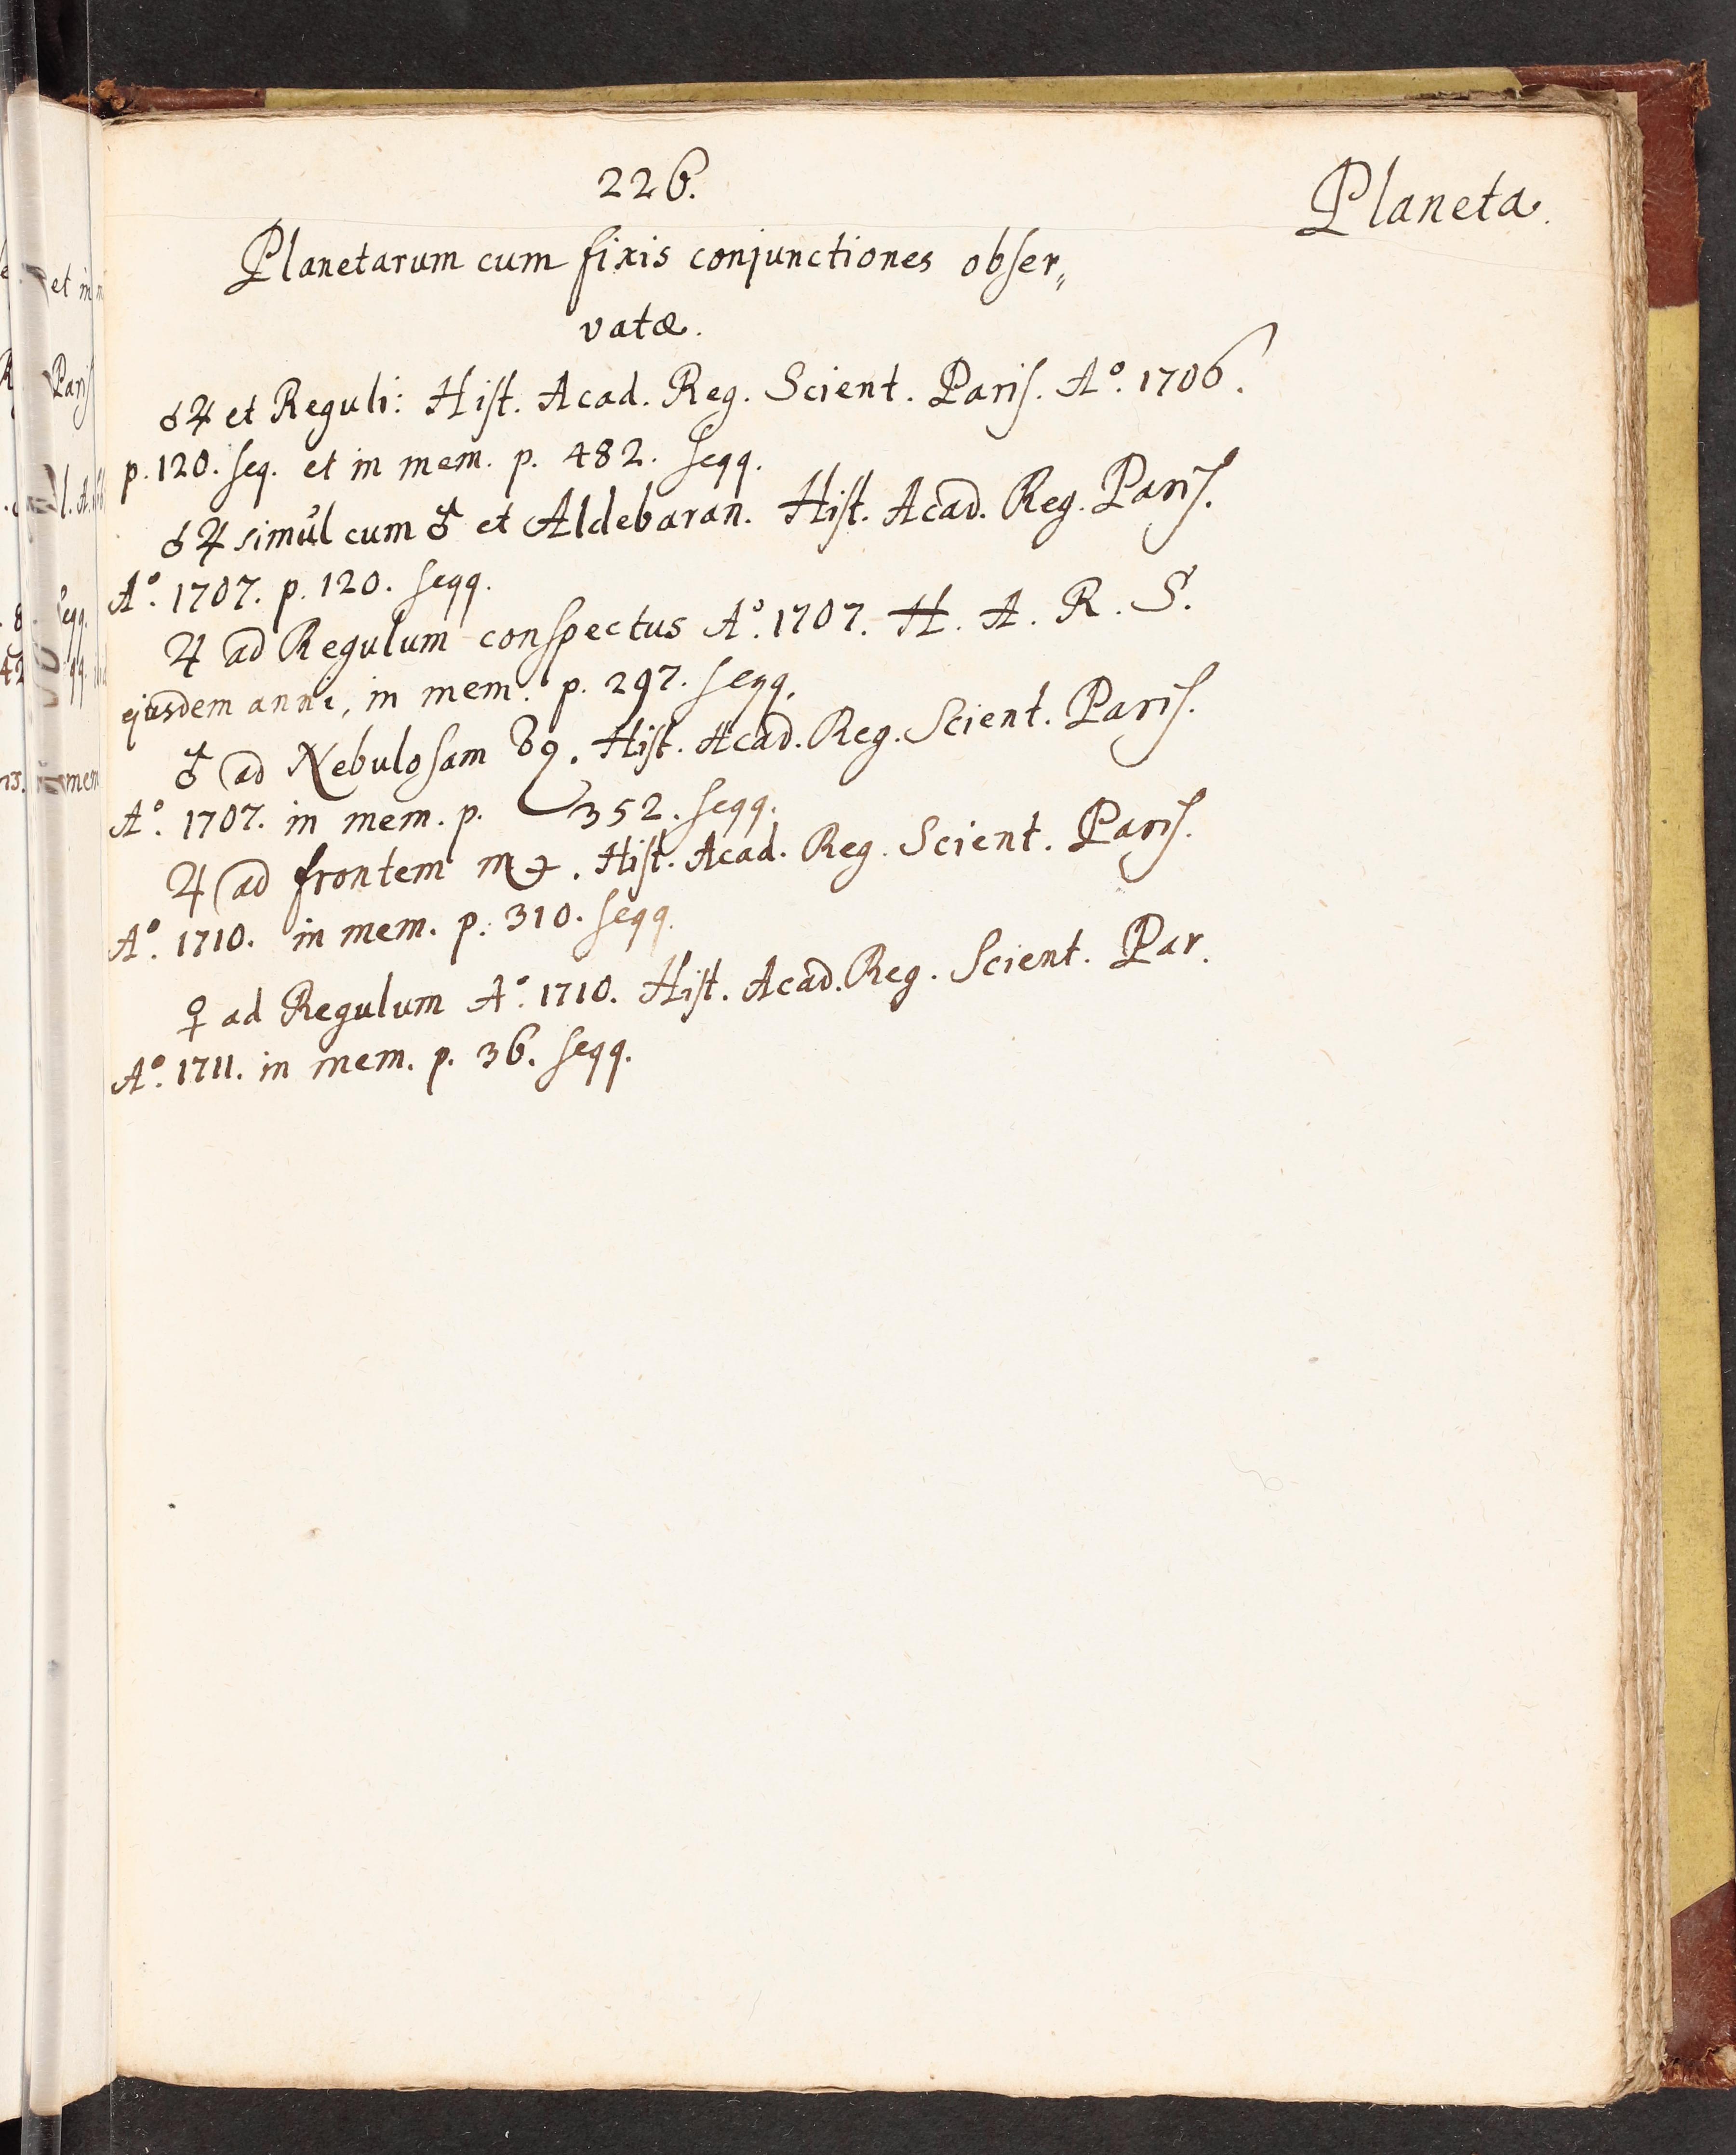 226.
Planeta.
Planetarum cum fixis conjunctiones obser„
vatæ.
☌♃ et Reguli: Hiſt. Acad. Reg. Scient. Pariſ. A°. 1706.
p. 120. ſeq. et in mem. p. 482. ſeqq.
☌♃ simul cum ♂ et Aldebaran. Hiſt. Acad. Reg. Pariſ.
A°. 1707. p. 120. ſeqq.
♃ ad Regulum conſpectus A°. 1707. H. A. R. S.
ejusdem anni, in mem. p. 297. ſeqq.
♂ ad Nebuloſam Hiſt. Acad. Reg. Scient. Pariſ.
A°. 1707. in mem. p. 352. ſeqq.
♃ ad frontem Hiſt. Acad. Reg. Scient. Pariſ.
A°. 1710. in mem. p. 310. ſeqq.
♀ ad Regulum A°. 1710. Hiſt. Acad. Reg. Scient. Par.
A°. 1711. in mem. p. 36. ſeqq.